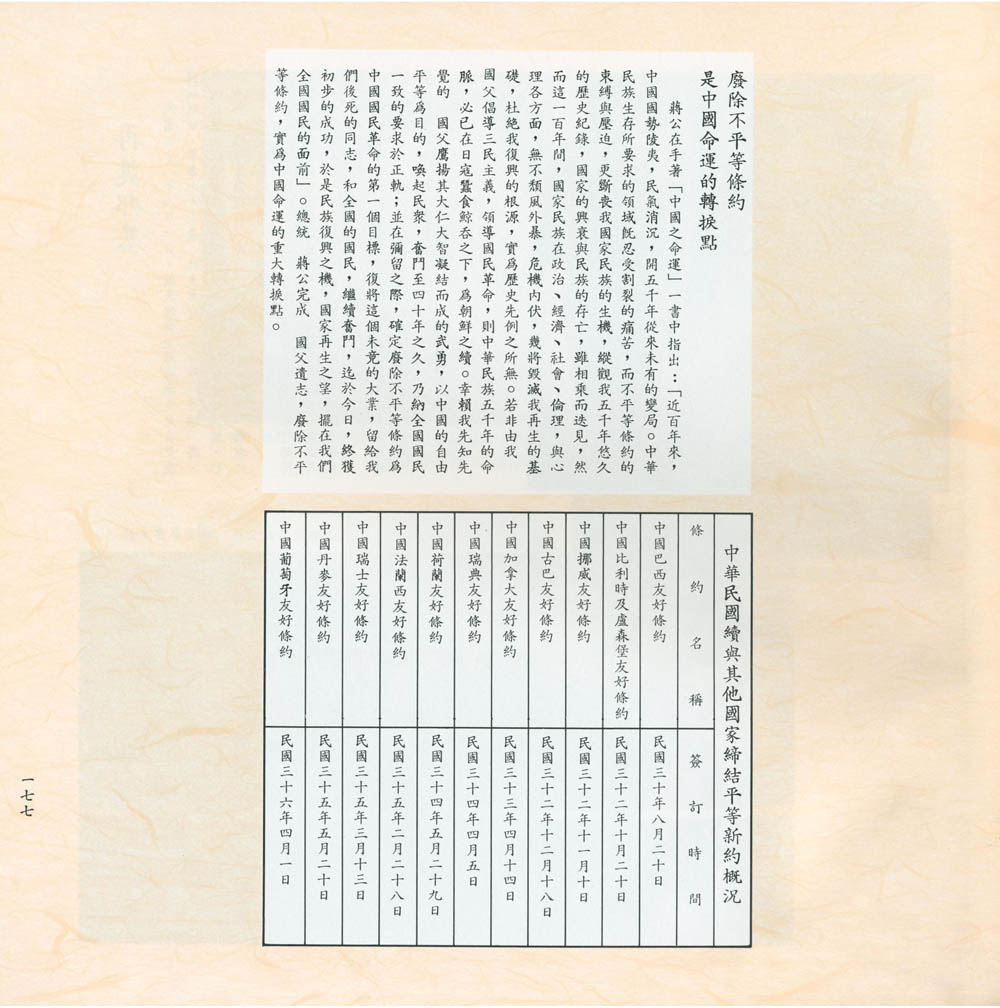 廢除不平等條約
是中國命運的轉捩點
蔣公在手著「中國之命運」一書中指出：「近百年來，
中國國勢陵夷，民氣消沉，開五千年從來未有的變局。中華
民族生存所要求的領域既忍受割裂的痛苦，而不平等條約的
束縛與壓迫，更斷喪我國家民族的生機，縱觀我五千年悠久
的歷史紀錄，國家的興衰與民族的存亡，雖相乘而迭見，然
而這一百年間，國家民族在政治、經濟、社會、倫理，與心
理各方面，無不頹風外暴，危機內伏，幾將毀滅我再生的基
礎，杜絕我復興的根源，實爲歷史先例之所無。若非由我
國父倡導三民主義，領導國民革命，則中華民族五千年的命
脈，必已在日寇蠶食鯨吞之下，爲朝鮮之續。幸賴我先知先
覺的　國父鷹揚其大仁大智凝結而成的武勇，以中國的自由
平等爲目的，喚起民衆，奮鬥至四十年之久，乃納全國國民
一致的要求於正軌；並在彌留之際，確定廢除不平等條約爲
中國國民革命的第一個目標，復將這個未竟的大業，留給我
們後死的同志，和全國的國民，繼續奮鬥，迄於今日，終獲
初步的成功，於是民族復興之機，國家再生之望，擺在我們
全國國民的面前」。總統　蔣公完成　國父遺志，廢除不平
等條約，實爲中國命運的重大轉捩點。
中華民國續與其他國家締結平等新約概況
條約名稱　簽訂時間
中國巴西友好條約　民國三十年八月二十日
中國比利時及盧森堡友好條約　民國三十二年十月二十日
中國挪威友好條約　民國三十二年十一月十日
中國古巴友好條約　民國三十二年十二月十八日
中國加拿大友好條約　民國三十三年四月十四日
中國瑞典友好條約　民國三十四年四月五日
中國荷蘭友好條約　民國三十四年五月二十九日
中國法蘭西友好條約　民國三十五年二月二十八日
中國瑞士友好條約　民國三十五年三月十三日
中國丹麥友好條約　民國三十五年五月二十日
中國葡萄牙友好條約　民國三十六年四月一日
一七七